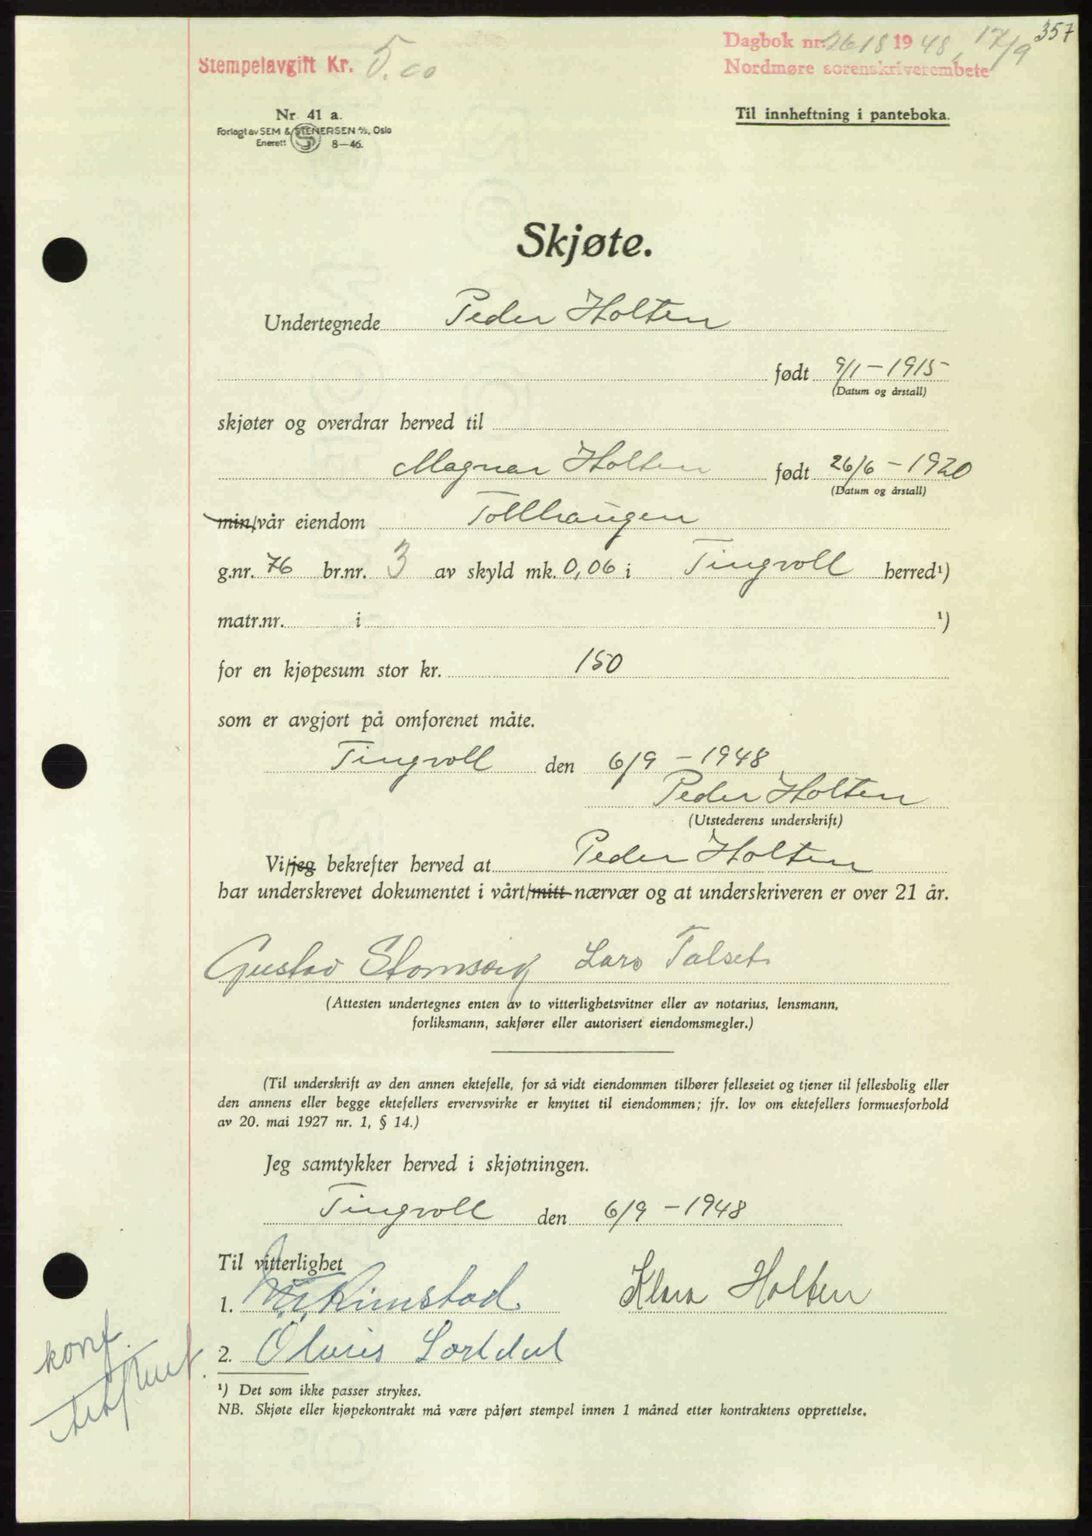 357
Dagbok nr. 2618 1948, 17/9
Nordmøre sorenskriverembete
Stempelavgift Kr. 5.00
Nr 41 a.
Forlagt av SEM & STENERSEN A/S, Oslo
Enerett 8–46.
Til innheftning i panteboka.
Skjøte.
Undertegnede Peder Holten
født 9/1 – 1915
(Datum og årstall)
skjøter og overdrar herved til
Magnar Holten født 26/6 – 1920
(Datum og årstall)
min/vår eiendom Tollhaugen
g.nr. 76 br.nr. 3 av skyld mk. 0,06 i Tingvoll herred¹)
matr.nr. i ¹)
for en kjøpesum stor kr. 150
som er avgjort på omforenet måte.
Tingvoll den 6/9 – 1948
Peder Holten
(Utstederens underskrift)
Vi/jeg bekrefter herved at Peder Holten
har underskrevet dokumentet i vårt/mitt nærvær og at underskriveren er over 21 år.
Gustav Lars Talset
(Attesten undertegnes enten av to vitterlighetsvitner eller av notarius, lensmann,
forliksmann, sakfører eller autorisert eiendomsmegler.)
(Til underskrift av den annen ektefelle, for så vidt eiendommen tilhører felleseiet og tjener til fellesbolig eller
den annens eller begge ektefellers ervervsvirke er knyttet til eiendommen; jfr. lov om ektefellers formuesforhold
av 20. mai 1927 nr. 1, § 14.)
Jeg samtykker herved i skjøtningen.
Tingvoll den 6/9 – 1948
Til vitterlighet
1. Rimstad Klara Holten
2.
konf.
¹) Det som ikke passer strykes.
NB. Skjøte eller kjøpekontrakt må være påført stempel innen 1 måned etter kontraktens opprettelse.